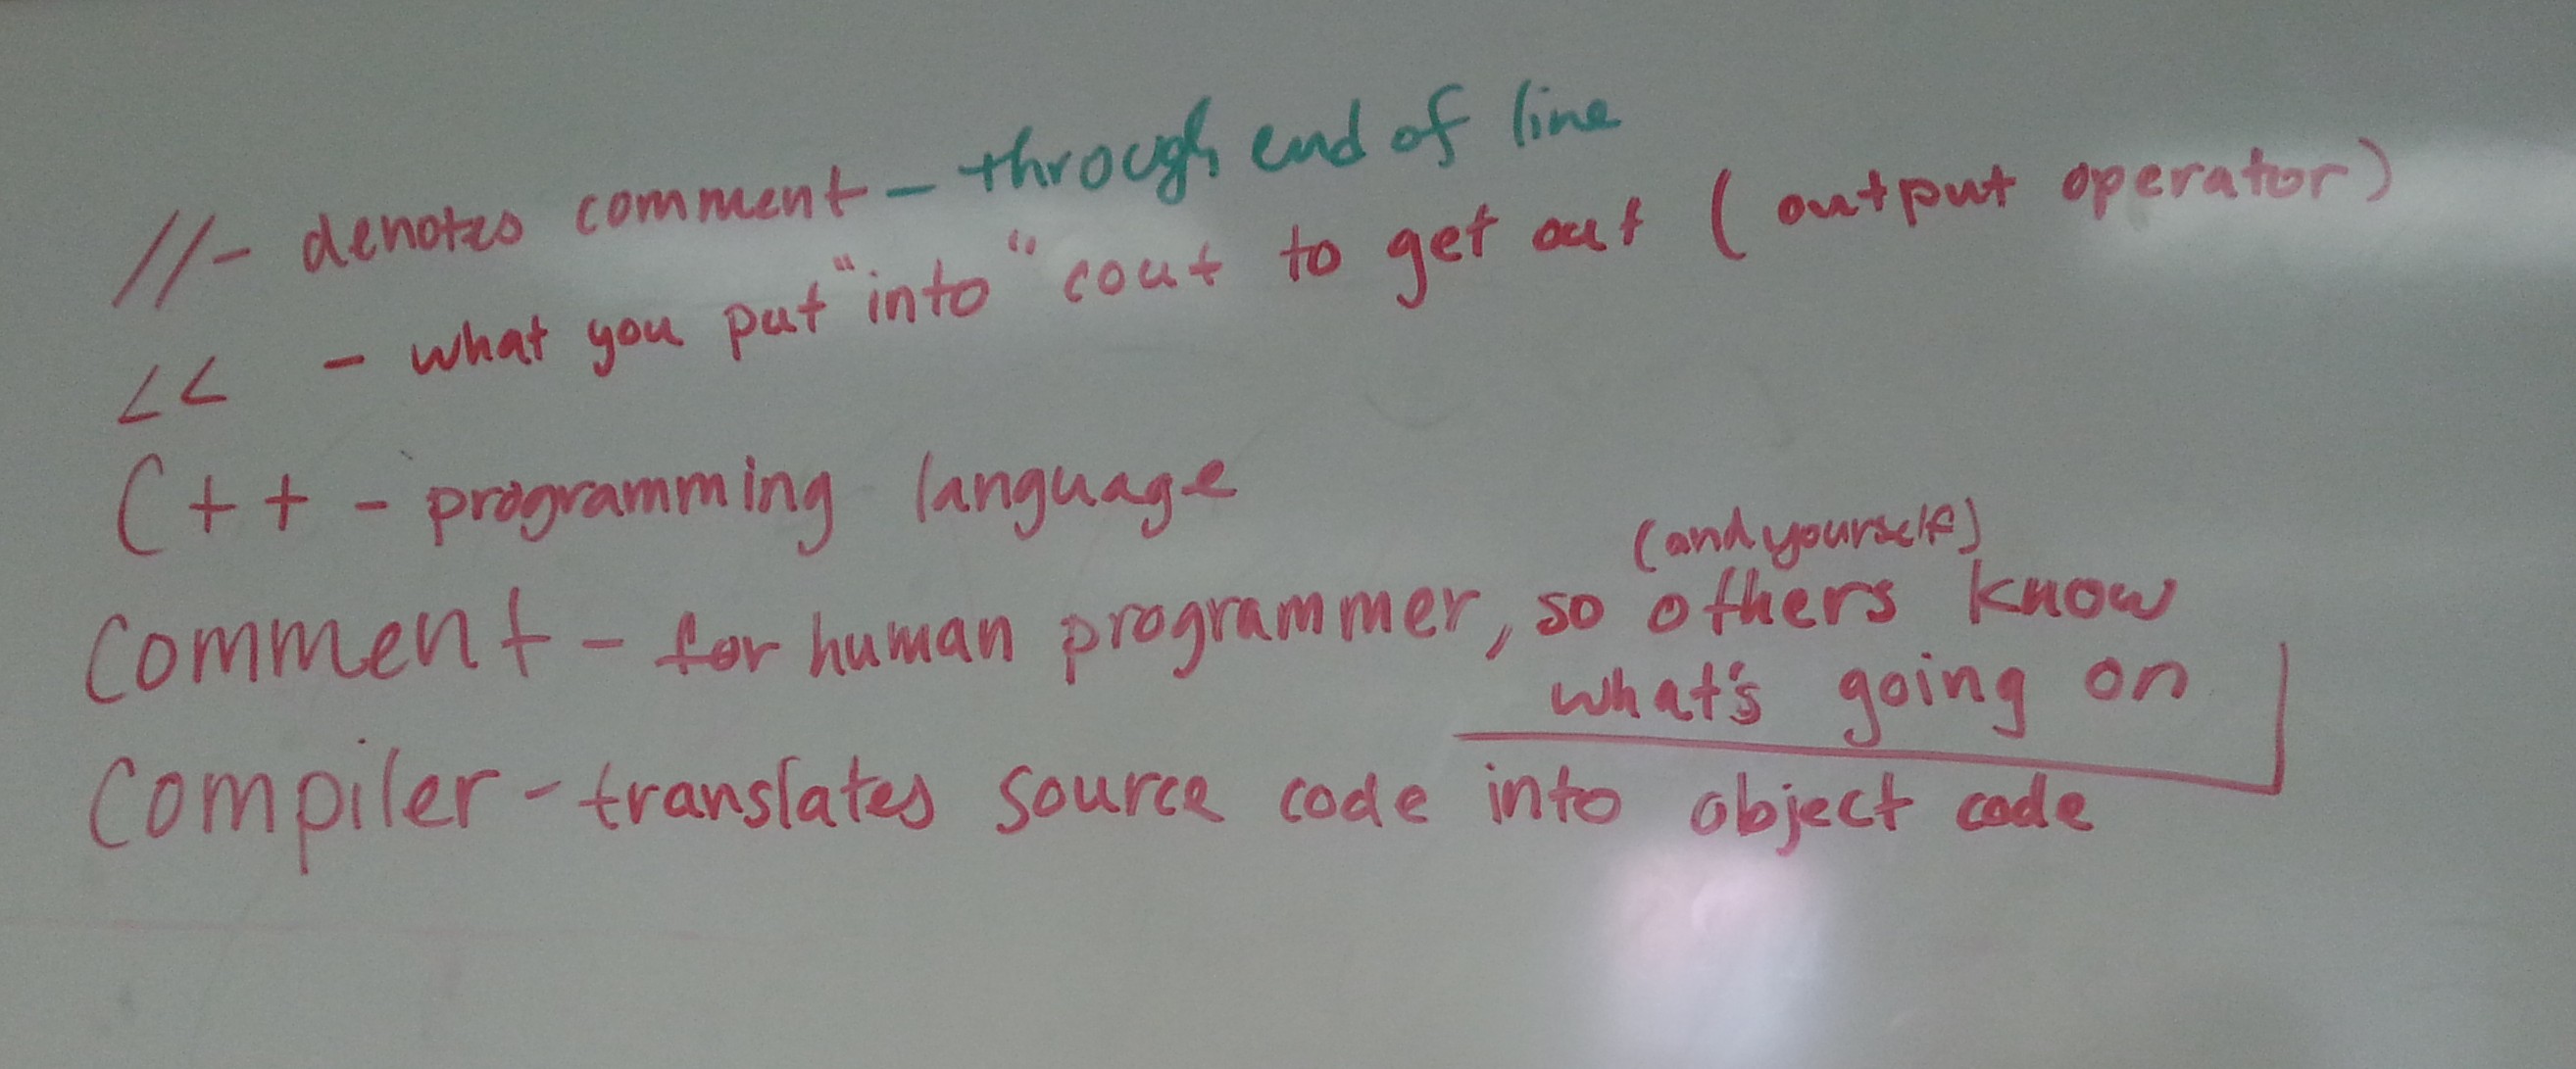 //- denotes comment - through end of line
<< - what you put "into" cout to get out (output operator)
C++ - programming language
(and yourself)
Comment - for human programmer, so others know
what's going on
Compiler - translates source code into object code